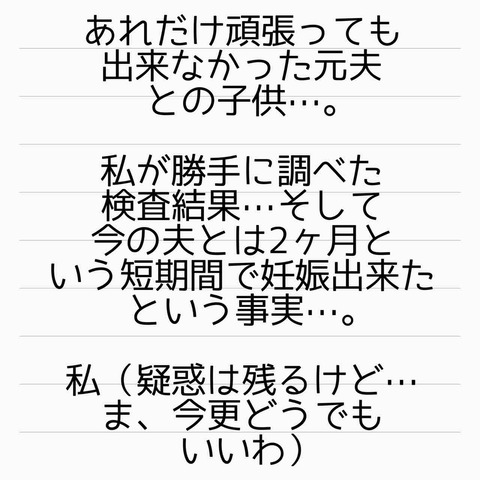 あれだけ頑張っても
出来なかった元夫
との子供…。
私が勝手に調べた
検査結果…そして
今の夫とは2ヶ月と
いう短期間で妊娠出来た
という事実…。
私（疑惑は残るけど…
ま、今更どうでも
いいわ）